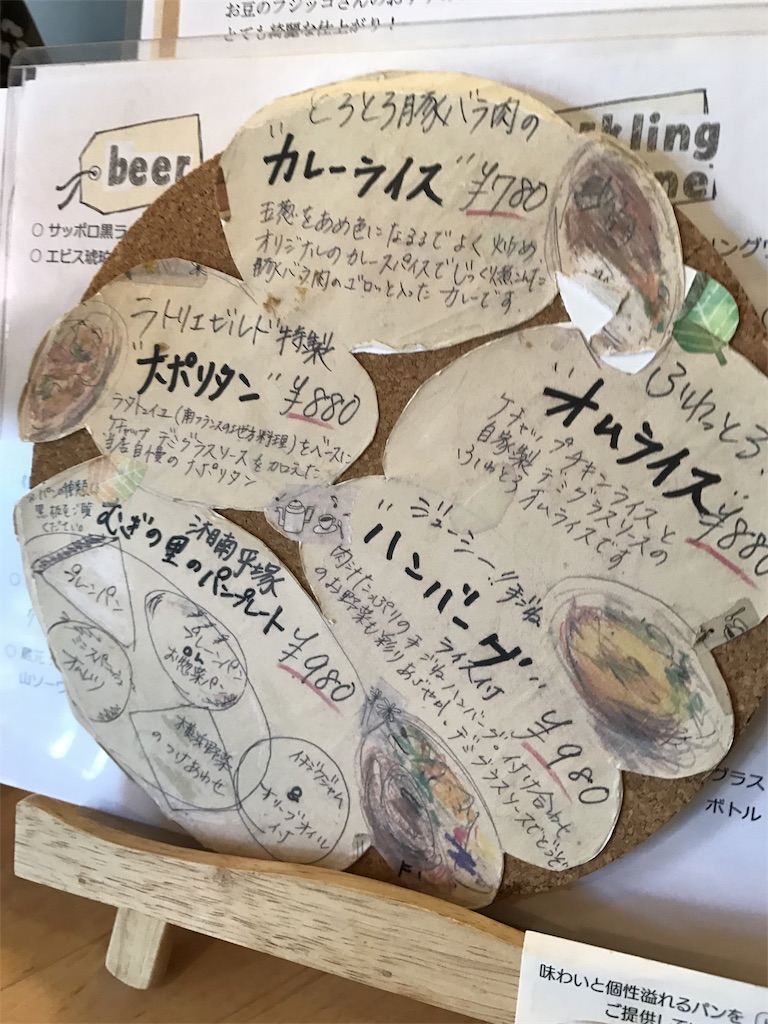 お豆のフジッコさんのおすす
とても綺麗な仕上がり！
beer
○ サッポロ黒ラ
○ エビス琥珀
kling
ne
リングワ
とろとろ豚バラ肉の
"カレーライス" ¥780
玉葱をあめ色になるまでよく炒め
オリジナルのカレースパイスでじっくり煮こんだ
豚バラ肉のゴロッと入ったカレーです
ラトリエゼルド特製
"ナポリタン" ¥880
ラタトゥイユ(南フランスの地方料理)をベースに
ケチャップ デミグラスソースを加えた
当店自慢のナポリタン
ふわっとろ
"オムライス" ¥880
ケチャップチキンライスと
自家製デミグラスソースの
ふわとろオムライスです。
ジューシー!! 手ごね
"ハンバーグ" ライス付 ¥980
肉汁たっぷりの手ごねハンバーグ 付け合わせ
のお野菜も彩りあざやか、デミグラスソースでどうぞ
※パンの種類は
黒板をご覧
ください。
湘南平塚
むぎの里のパンプレート ¥980
プレーンパン
プレーンパン
or
お惣菜パン
横浜野菜
のつけあわせ
イチジクジャム
&
オリーブオイル
付
蔵元
山ソーワ
グラス
ボトル
味わいと個性溢れるパンを
ご提供して